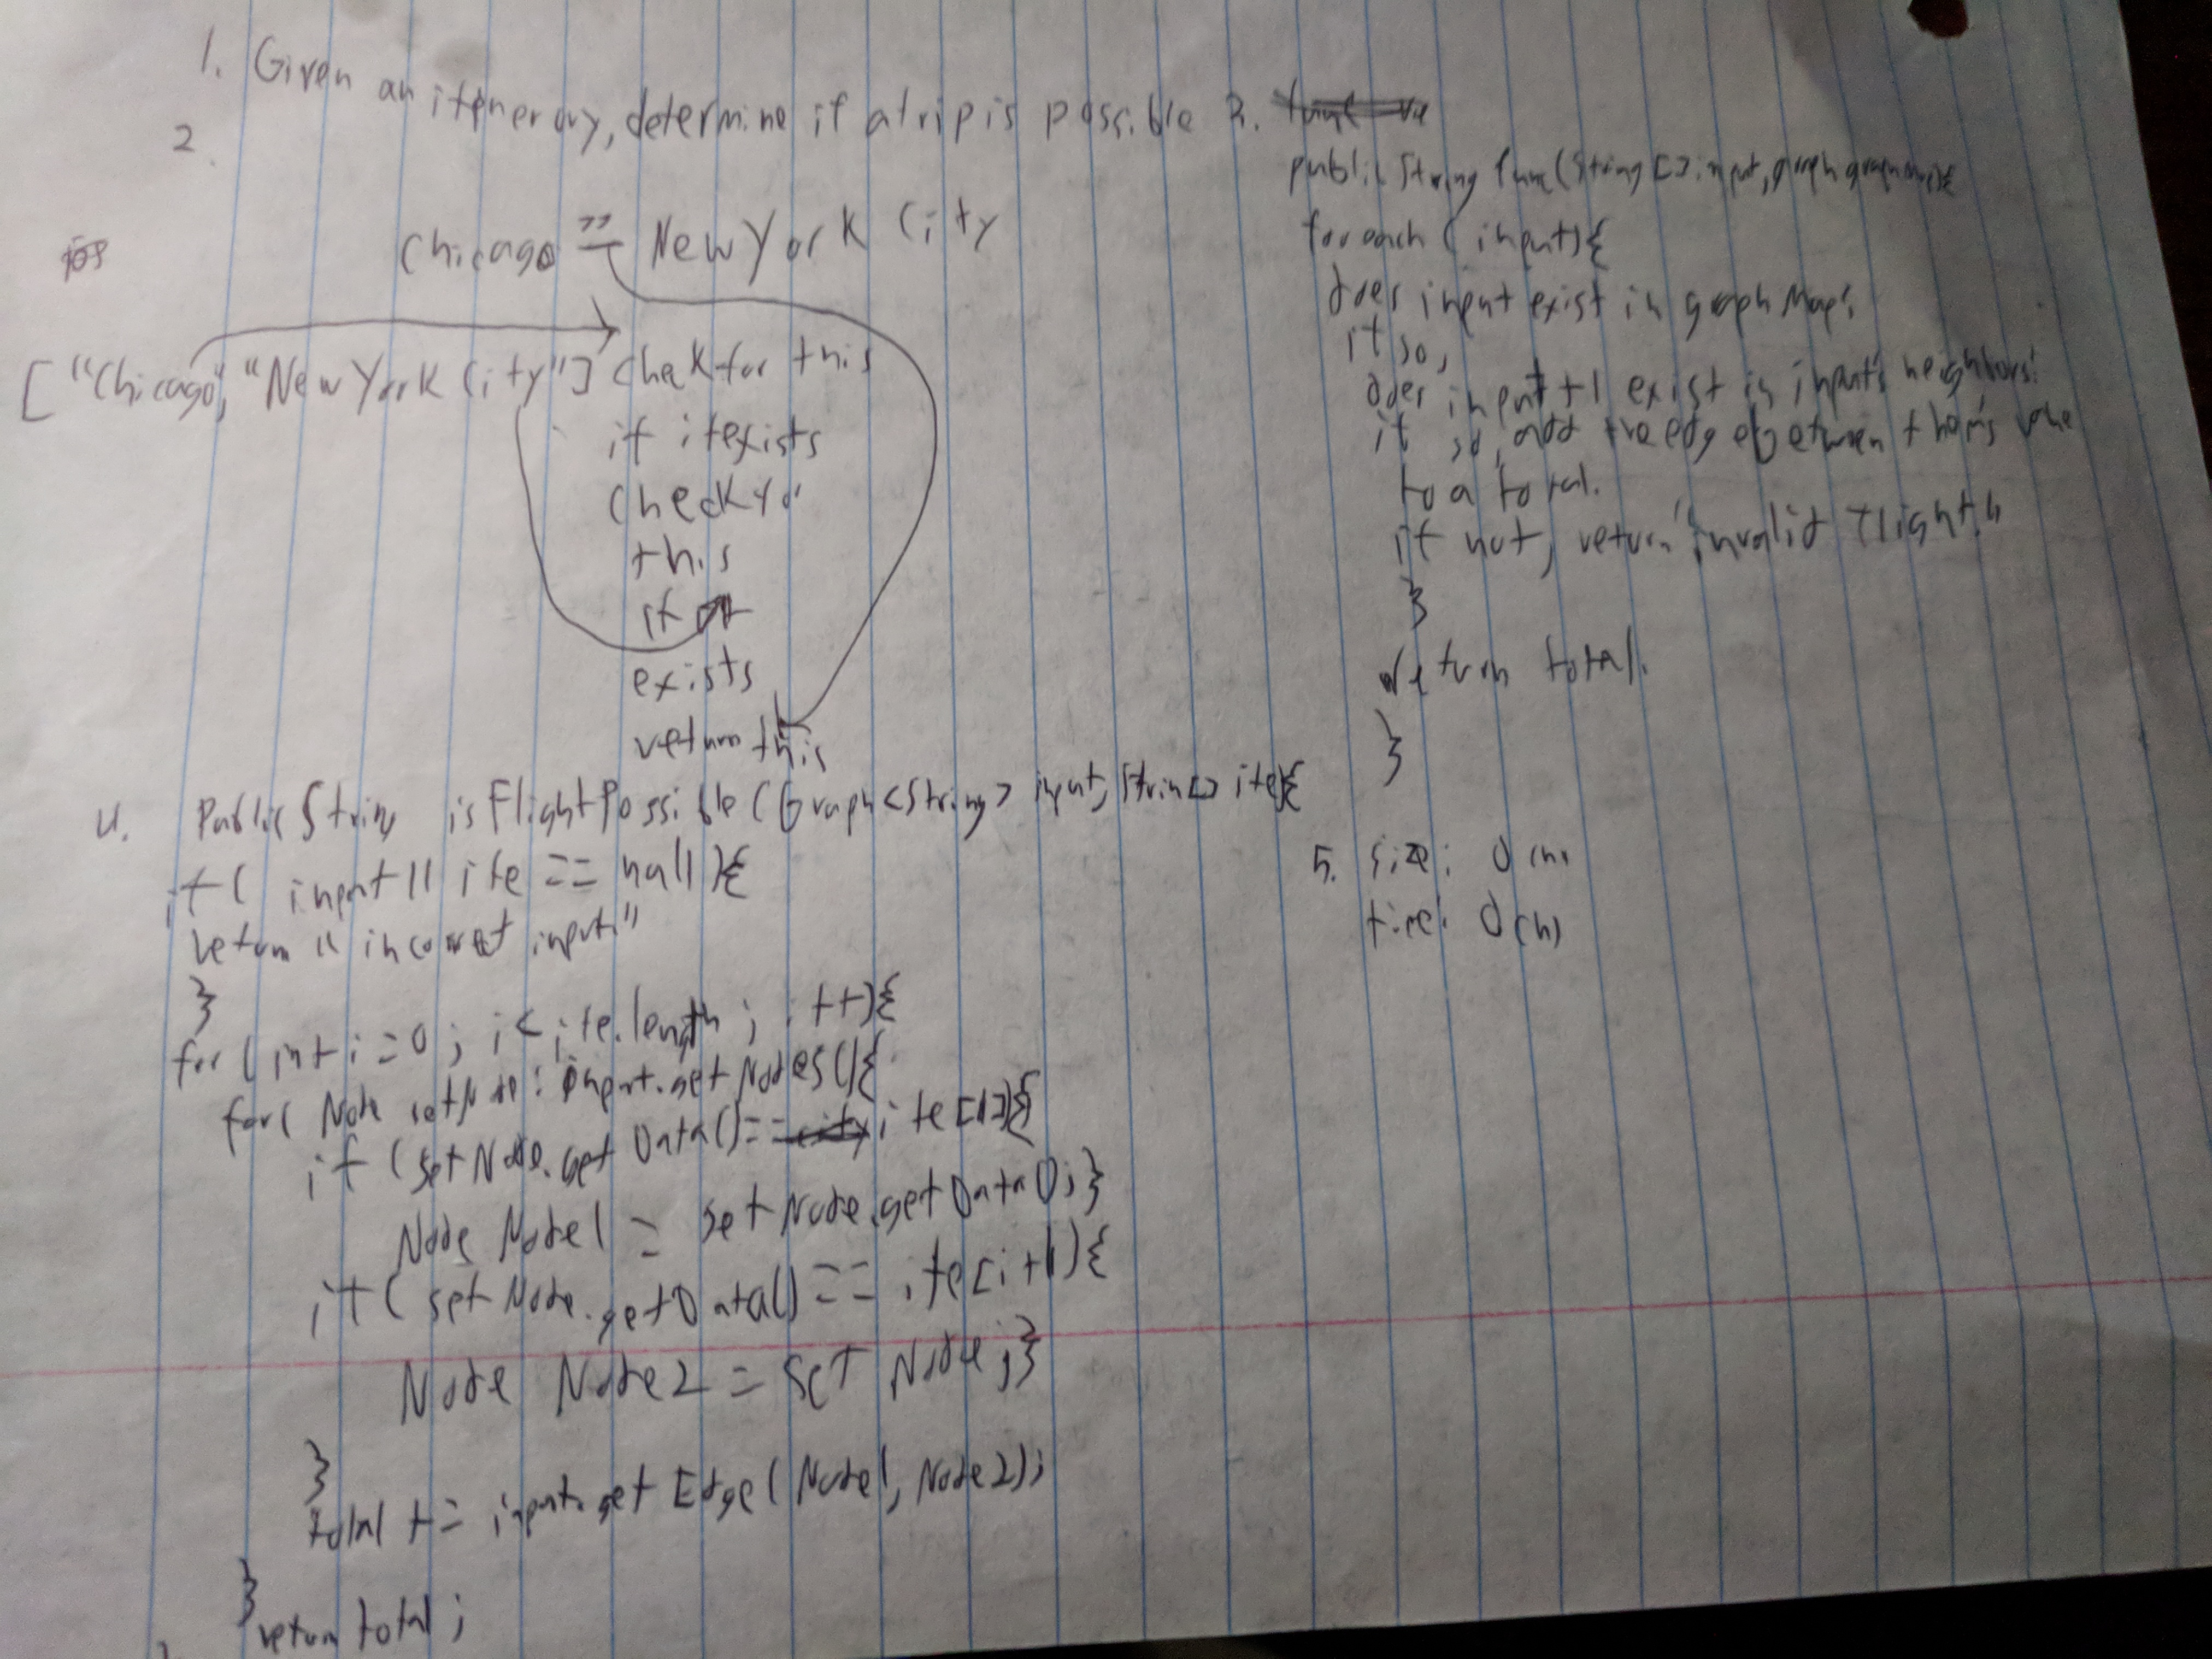 1. Given an itenerary, determine if a trip is possible
2.
Chicago ?? New York City
["Chicago", "New York City"] check for this
if it exists
check
this
if
exists
return this
3.
public String func(String[] input, graph
foreach (input){
does input exist in graph Map?
if so,
does input+1 exist in input's neighbors?
if so, add the edge between them's value
to a total.
if not, return "invalid flight."
}
return total.
}
4. Public String isFlightPossible (Graph<String> input, Strin[] ite){
if( input || ite == null){
return "incorrect input"
}
for (int i=0; i< ite.length; i++){
for( Node setNode: input.getNodes(){
if (setNode.getData()== ite[i]){
Node Node1 = setNode.getData();}
if( setNode.getData()== ite[i+1){
Node Node2 = setNode;}
}
total += input.getEdge(Node1, Node2);
}
return total;
5. size: O(n)
time: O(n)